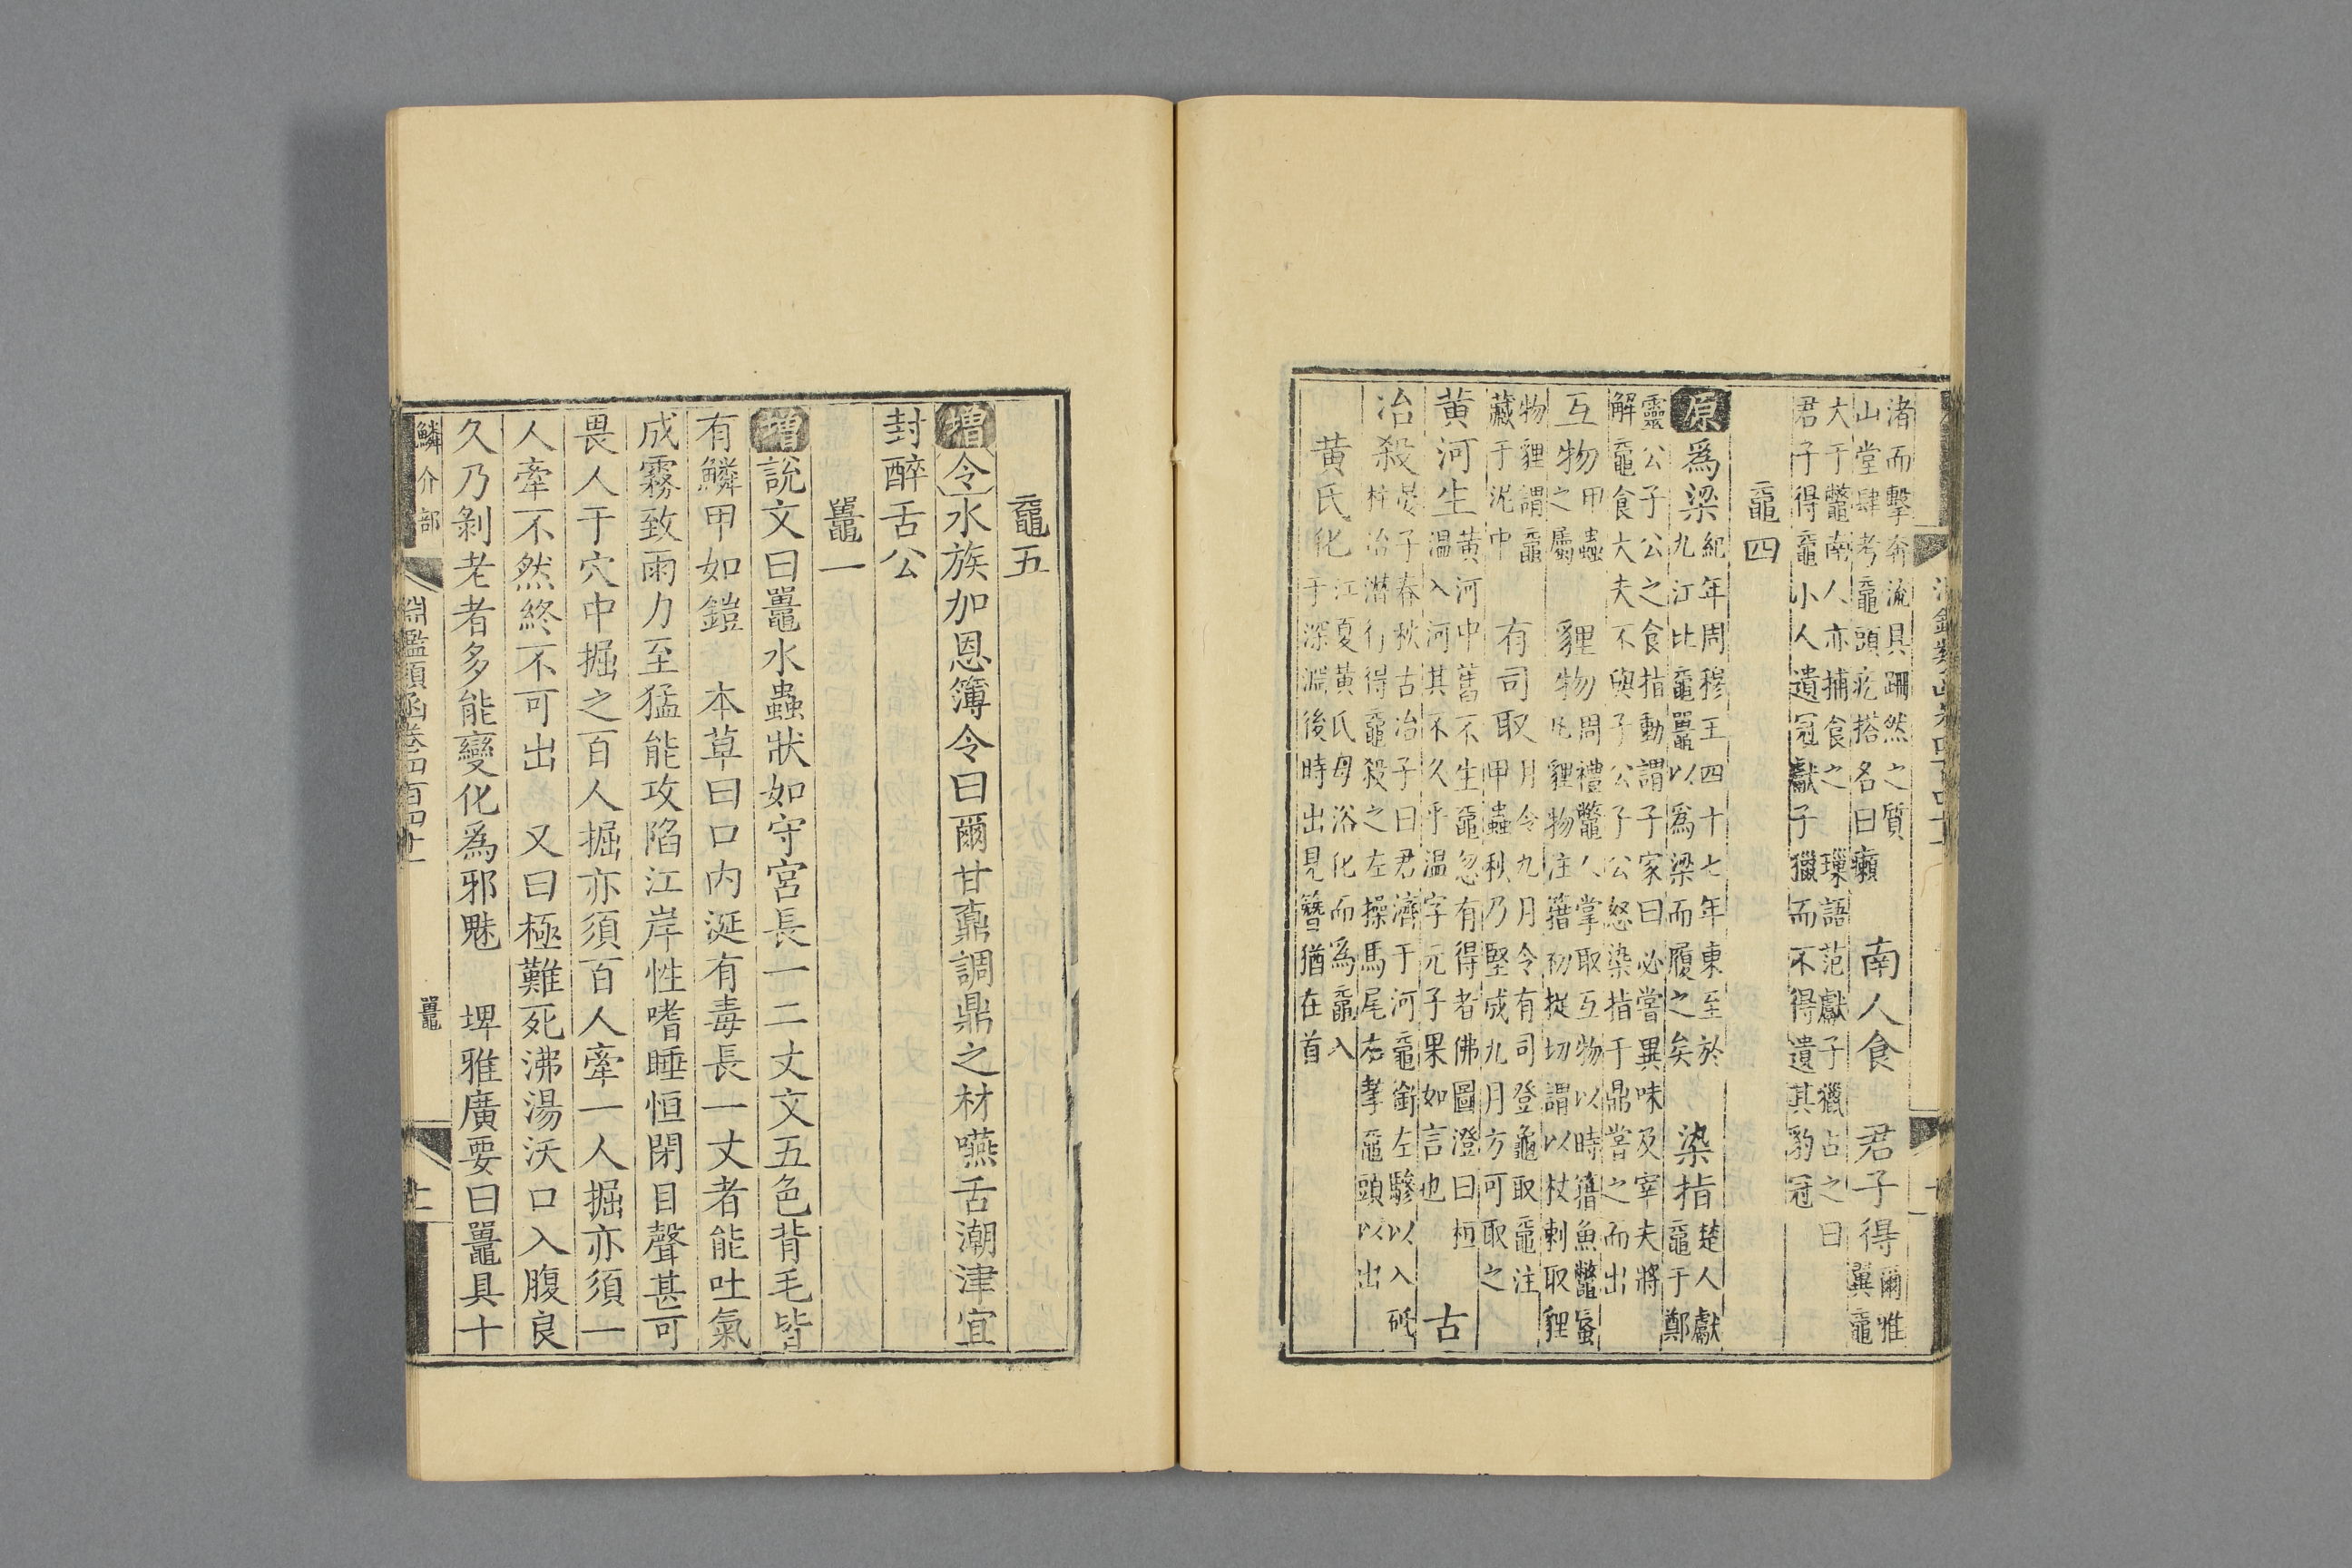 渚而擊奔流具跚然之質
山堂肆考黿頭疙搭名曰癩
南人食
君子得
爾雅
翼黿
大于鼈南人亦捕食之
璅語范獻子獵占之曰
君子得黿小人遺冠獻子獵而不得遺其豹冠
黿四
原爲梁
紀年周穆王四十七年東至於
九江比黿鼉以爲梁而履之矣
染指
楚人獻
黿于鄭
靈公子公之食指動謂子家曰必嘗異味及宰夫將
解黿食大夫不與子公子公怒染指于鼎嘗之而出
互物
甲蟲
之屬
貍物
周禮鼈人掌取互物以時籍魚鼈蜃
凡貍物注籍初捉切謂以杖刺取貍
物貍謂黿
藏于泥中
有司取
月令九月令有司登龜取黿注
甲蟲秋乃堅成九月方可取之
黄河生
黄河中舊不生黿忽有得者佛圖澄曰桓
温入河其不久乎温字元子果如言也
古
冶殺
晏子春秋古冶子曰君濟于河黿銜左驂以入砥
柱冶潛行得黿殺之左操馬尾右挈黿頭以出
黄氏化
江夏黄氏母浴化而爲黿入
于深淵後時出見簪猶在首
黿五
增令水族加恩簿令曰爾甘鼒調鼎之材嚥舌潮津宜
封醉舌公
鼉一
增說文曰鼉水蟲狀如守宫長一二丈文五色背毛皆
有鱗甲如鎧　本草曰口内涎有毒長一丈者能吐氣
成霧致雨力至猛能攻陷江岸性嗜睡恒閉目聲甚可
畏人于穴中掘之百人掘亦須百人牽一人掘亦須一
人牽不然終不可出　又曰極難死沸湯沃口入腹良
久乃剝老者多能變化爲邪魅　埤雅廣要曰鼉具十
鱗介部
淵鑑類函卷四百四十一
鼉